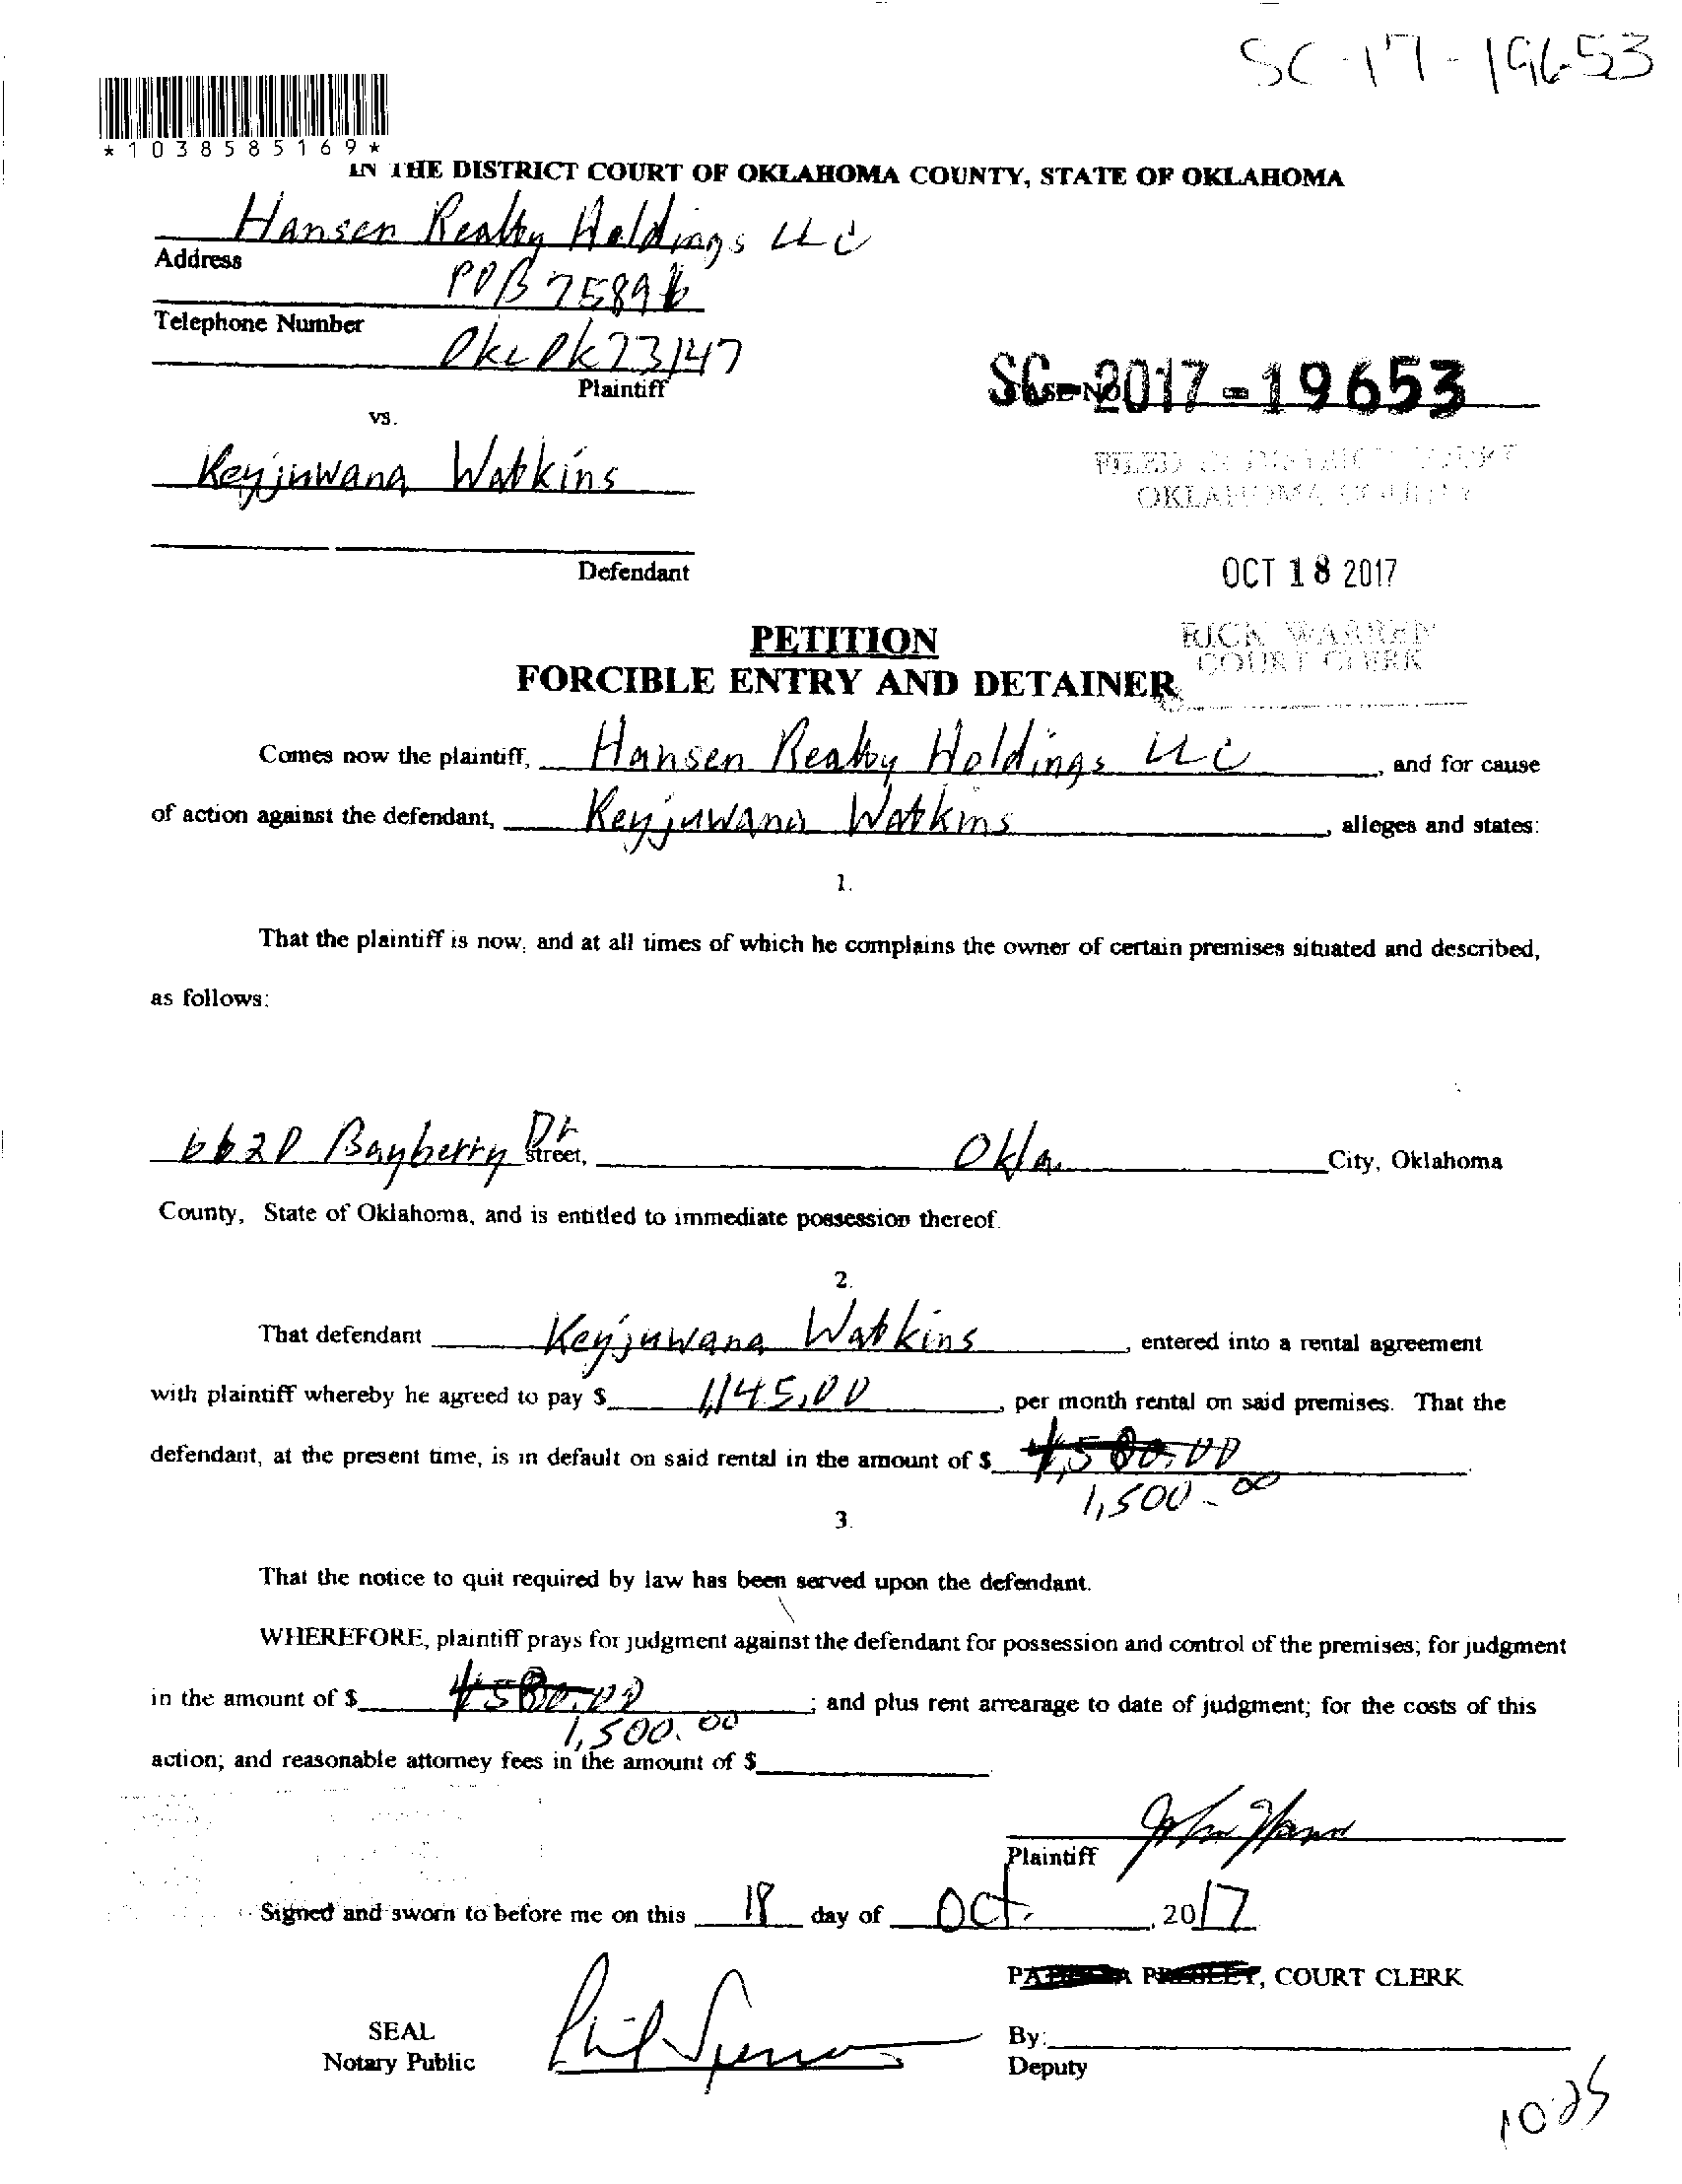 SC-17-19653
*1038585169*
IN THE DISTRICT COURT OF OKLAHOMA COUNTY, STATE OF OKLAHOMA
Hansen Realty Holdings LLC
Address
POB 75896
Telephone Number
Okc Ok 73147
Plaintiff
CASE NO.
SC-2017-19653
vs.
Keyjuwana Watkins
FILED IN DISTRICT COURT
OKLAHOMA COUNTY
Defendant
OCT 18 2017
PETITION
RICK WARREN
COURT CLERK
FORCIBLE ENTRY AND DETAINER
Comes now the plaintiff, Hansen Realty Holdings LLC, and for cause
of action against the defendant, Keyjuwana Watkins, alleges and states:
1.
That the plaintiff is now, and at all times of which he complains the owner of certain premises situated and described,
as follows:
6620 Bayberry Dr street, Okla. City, Oklahoma
County, State of Oklahoma, and is entitled to immediate possession thereof.
2.
That defendant Keyjuwana Watkins, entered into a rental agreement
with plaintiff whereby he agreed to pay $ 1,145.00, per month rental on said premises. That the
defendant, at the present time, is in default on said rental in the amount of $
1,500.00
3.
That the notice to quit required by law has been served upon the defendant.
WHEREFORE, plaintiff prays for judgment against the defendant for possession and control of the premises; for judgment
in the amount of $ ; and plus rent arrearage to date of judgment; for the costs of this
1,500.00
action; and reasonable attorney fees in the amount of $
Plaintiff
Signed and sworn to before me on this 18 day of Oct., 2017
COURT CLERK
SEAL
By:
Notary Public
Deputy
10-25